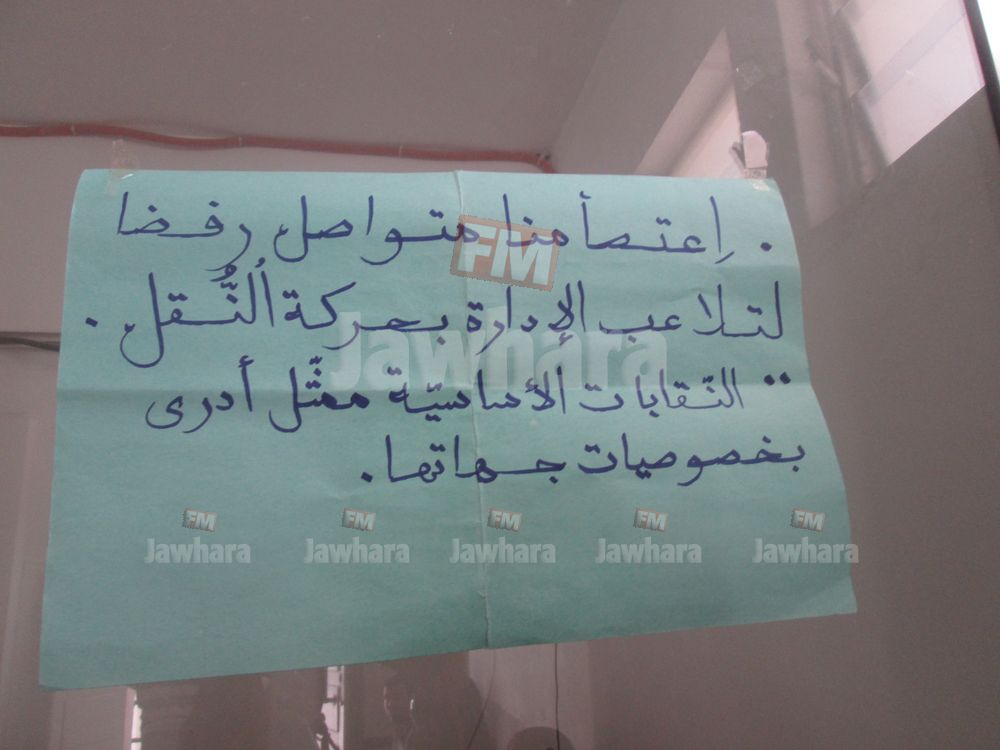 . إعتصأمنا متواصل رفضا
لتلاعب الإدارة بحركة اُلنُّقل .
.. النّقابات الأساسيّة ممثّل أدرى
بخصوصيات جهاتها.
FM
Jawhara
FM FM FM FM FM
Jawhara Jawhara Jawhara Jawhara Jawhara